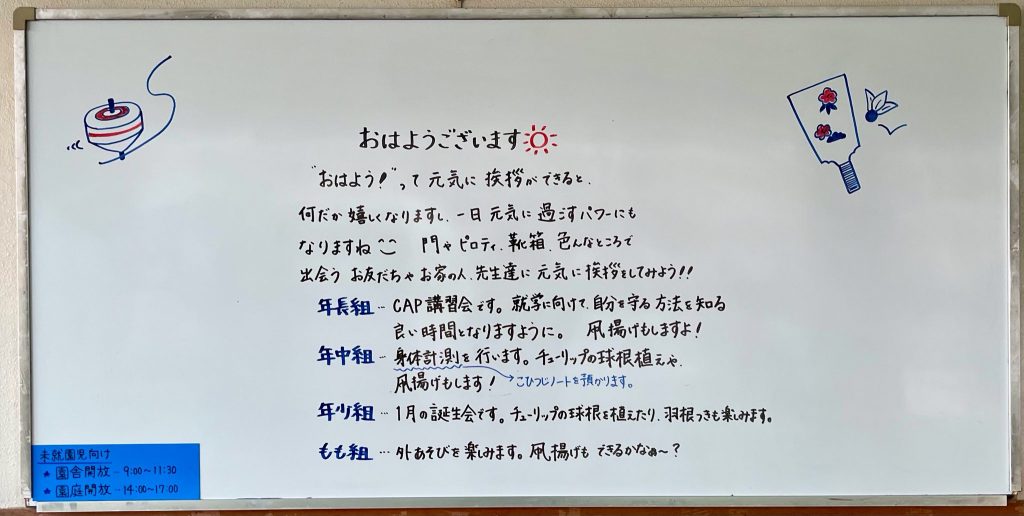 おはようございます
"おはよう！"って元気に挨拶ができると、
何だか嬉しくなりますし、一日元気に過ごすパワーにも
なりますね 門やピロティ、靴箱、色んなところで
出会うお友だちやお家の人、先生達に元気に挨拶をしてみよう!!
年長組…CAP講習会です。就学に向けて、自分を守る方法を知る
良い時間となりますように。 凧揚げもしますよ！
年中組…身体計測を行います。チューリップの球根植えや、
凧揚げもします！ →こひつじノートを預かります。
年少組…1月の誕生会です。チューリップの球根を植えたり、羽根つきも楽しみます。
もも組…外あそびを楽しみます。凧揚げもできるかなぁ〜？
未就園児向け
★園舎開放…9:00〜11:30
★園庭開放…14:00〜17:00